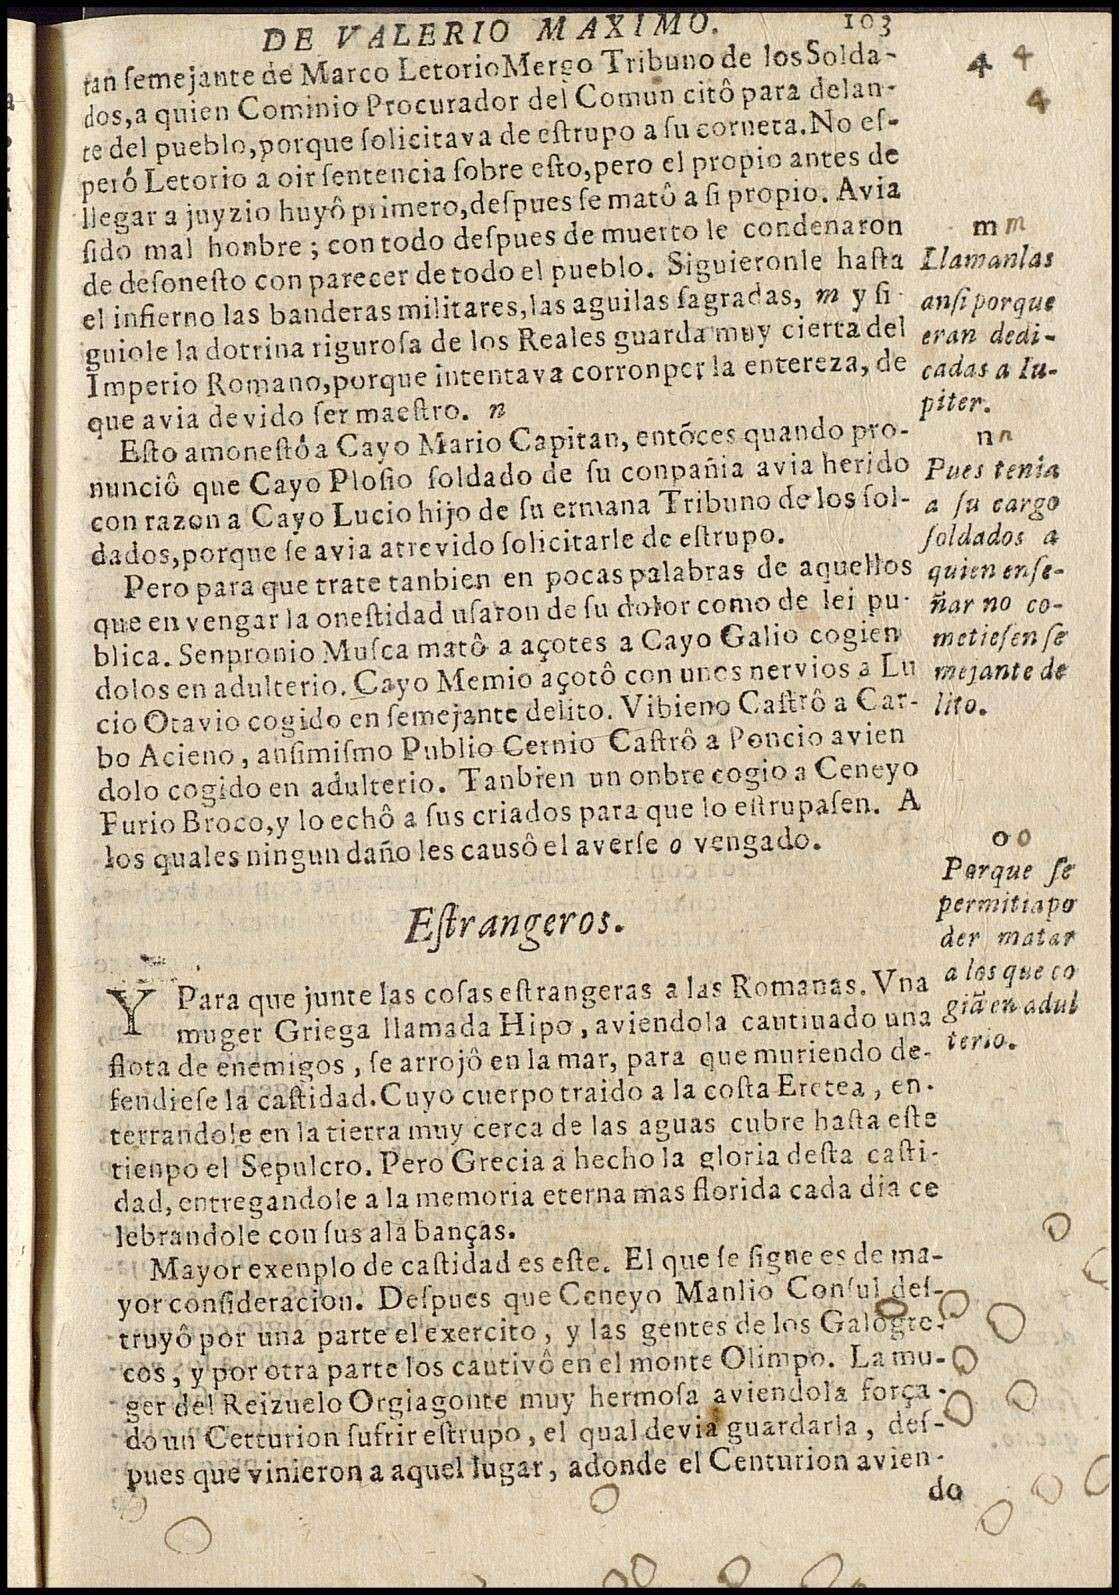 DE VALERIO MAXIMO. 103
tan ſemejante de Marco Letorio Mergo Tribuno de los Solda-
dos, a quien Cominio Procurador del Comun citô para delan-
te del pueblo, porque ſolicitava de eſtrupo a ſu corneta. No eſ-
peró Letorio a oir ſentencia ſobre eſto, pero el propio antes de
llegar a juyzio huyô primero, deſpues ſe matô a ſi propio. Avia
ſido mal honbre; con todo deſpues de muerto le condenaron
de deſoneſto con parecer de todo el pueblo. Siguieronle haſta
el infierno las banderas militares, las aguilas ſagradas, m y ſi-
guiole la dotrina riguroſa de los Reales guarda muy cierta del
Imperio Romano, porque intentava corronper la entereza, de
que avia devido ſer maeſtro. n
Eſto amoneſtó a Cayo Mario Capitan, entõces quando pro-
nunciô que Cayo Ploſio ſoldado de ſu conpañia avia herido
con razon a Cayo Lucio hijo de ſu ermana Tribuno de los ſol-
dados, porque ſe avia atrevido ſolicitarle de eſtrupo.
Pero para que trate tanbien en pocas palabras de aquellos
que en vengar la oneſtidad uſaron de ſu dolor como de lei pu-
blica. Senpronio Muſca matô a açotes a Cayo Galio cogien
dolos en adulterio. Cayo Memio açotô con unos nervios a Lu
cio Otavio cogido en ſemejante delito. Vibieno Caſtrô a Car-
bo Acieno, anſimiſmo Publio Cernio Caſtrô a Poncio avien
dolo cogido en adulterio. Tanbien un onbre cogio a Ceneyo
Furio Broco, y lo echô a ſus criados para que lo eſtrupaſen. A
los quales ningun daño les causô el averſe o vengado.
Eſtrangeros.
Y Para que junte las coſas eſtrangeras a las Romanas. Vna
muger Griega llamada Hipo, aviendola cautivado una
flota de enemigos, ſe arrojô en la mar, para que muriendo de-
fendieſe la caſtidad. Cuyo cuerpo traido a la coſta Eretea, en-
terrandole en la tierra muy cerca de las aguas cubre haſta eſte
tienpo el Sepulcro. Pero Grecia a hecho la gloria deſta caſti-
dad, entregandole a la memoria eterna mas florida cada dia ce
lebrandole con ſus alabanças.
Mayor exenplo de caſtidad es eſte. El que ſe ſigue es de ma-
yor conſideracion. Deſpues que Ceneyo Manlio Conſul deſ-
truyô por una parte el exercito, y las gentes de los Galogre-
cos, y por otra parte los cautivô en el monte Olimpo. La mu-
ger del Reizuelo Orgiagonte muy hermoſa aviendola força-
do un Cetturion ſufrir eſtrupo, el qual devia guardarla, deſ-
pues que vinieron a aquel lugar, adonde el Centurion avien-
do
4 4
4
m m
Llamanlas
anſi porque
eran dedi-
cadas a Iu-
piter.
n n
Pues tenia
a ſu cargo
ſoldados a
quien enſe-
ñar no co-
metieſen ſe
mejante de
lito.
o o
Porque ſe
permitia po
der matar
a los que co
giã en adul
terio.